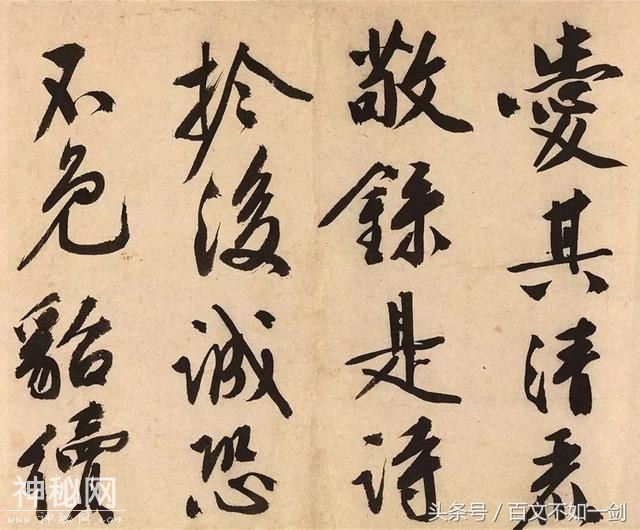 愛其清
敬錄是詩
扵後誠恐
不免貂續
神秘网
头条号 / 百文不如一剑